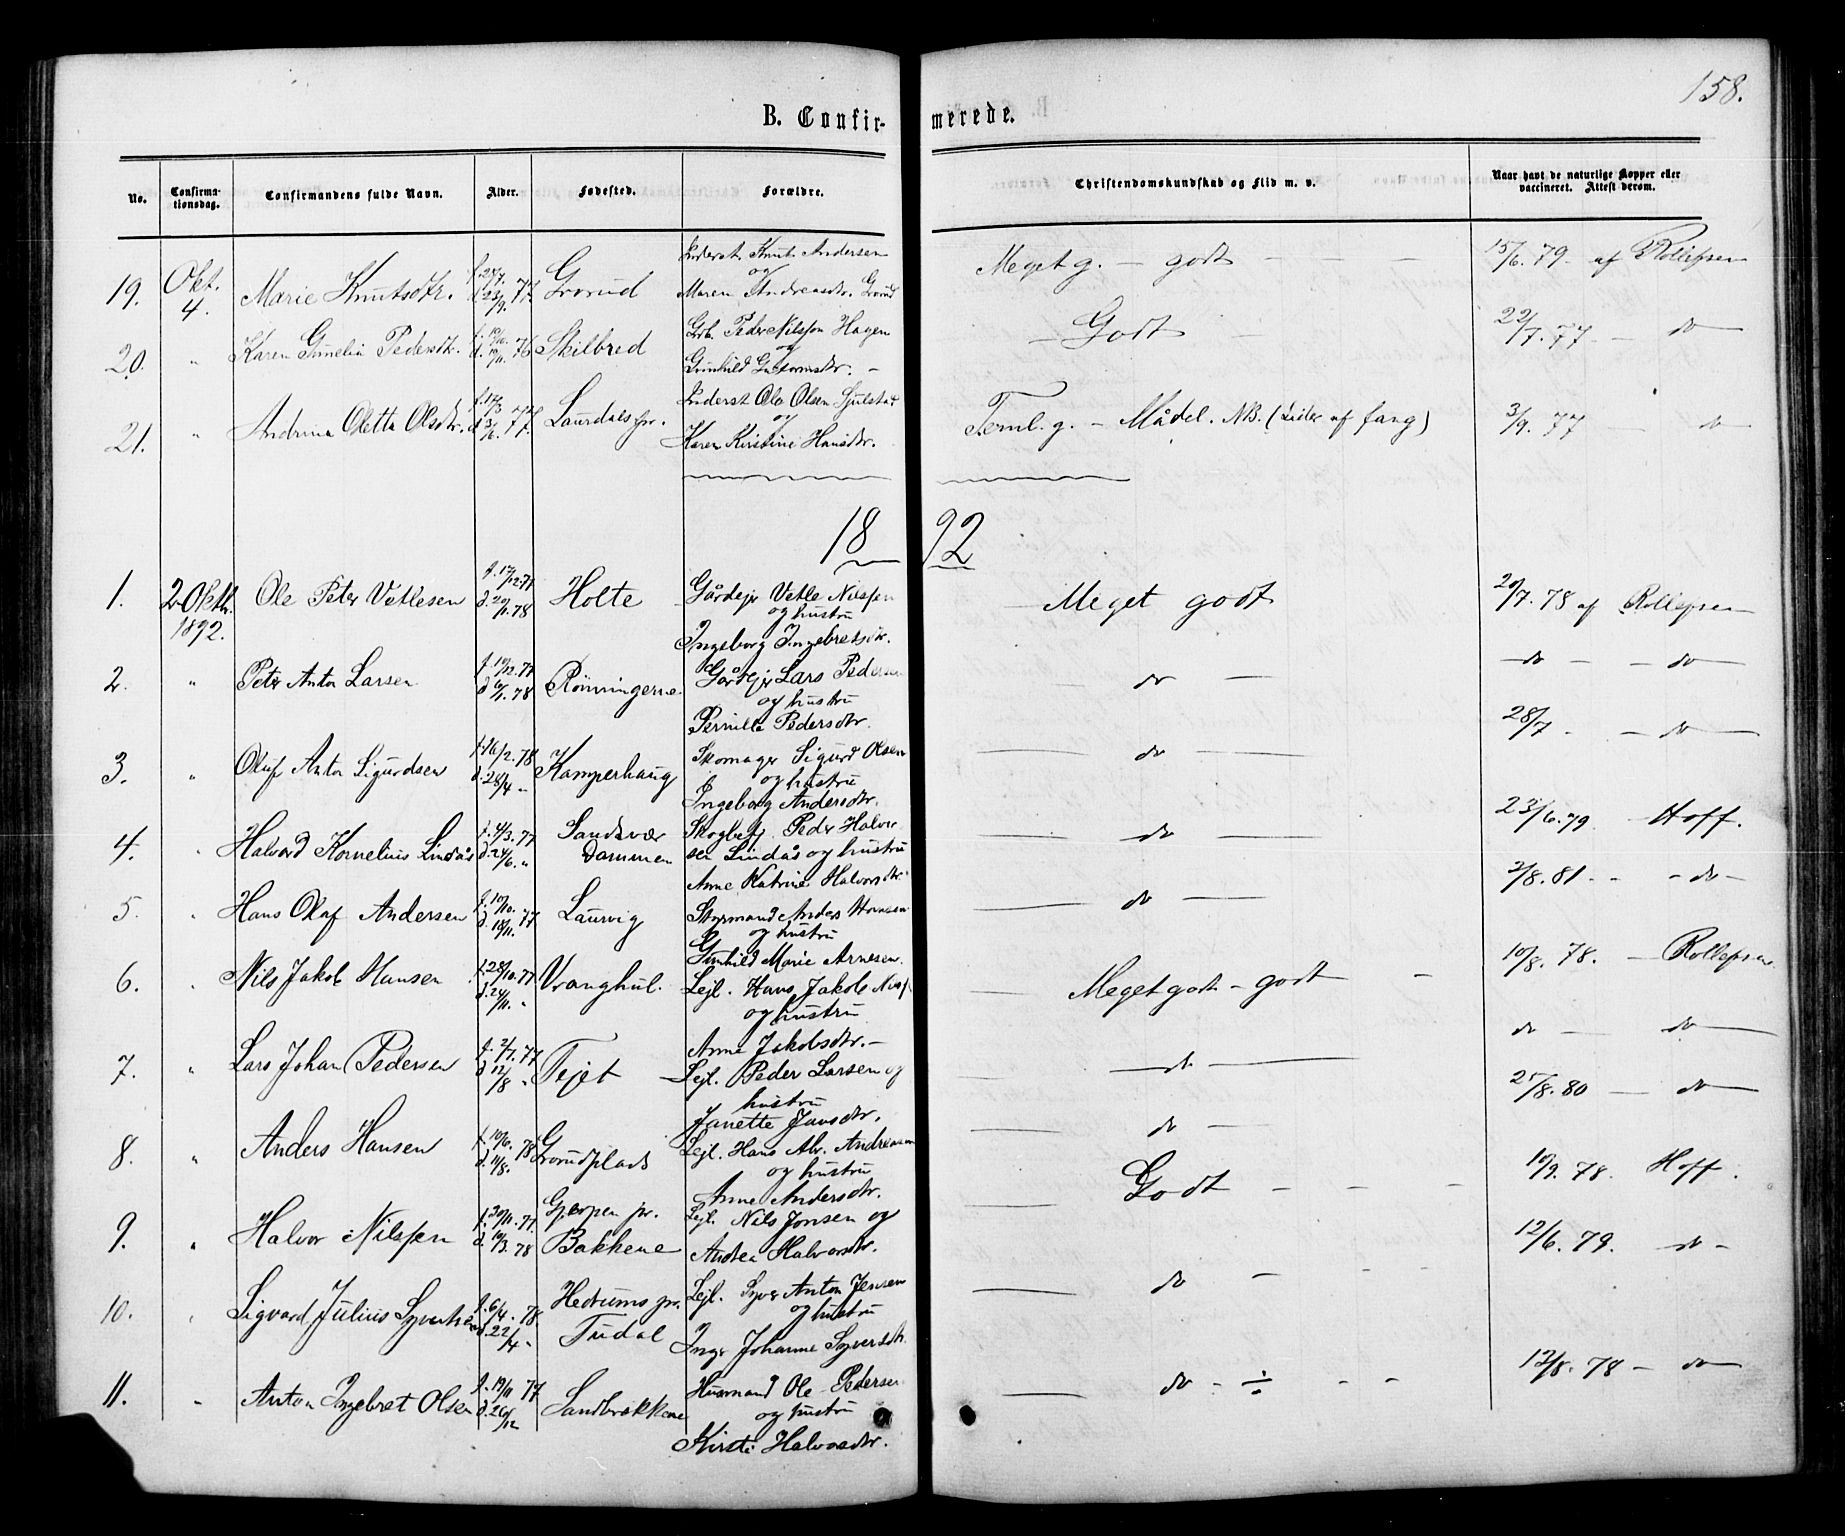 158.
B. Confirmerede.
No. Confirmationsdag. Confirmandens fulde Navn. Alder. Fødested. Forældre. Christendomskundskab og Flid m. v. Naar havt de naturlige Kopper eller vaccineret. Attest derom.
19. Okt. 4. Marie Knutsdtr. f. 24/7 77 d. 23/9. 77. Grorud Inderst Knut Andersen og Maren Andreasdtr. Grorud Meget g. — godt — — — 15/6. 79. af Rollefsen
20. " Karen Gunelia Pedersdtr. 76 Skilbred Grb. Peder Nilsson Hagen og Gunhild Guttormsdtr. — — Godt — 22/7. 77 — do
21. " Andrine Oletta Olsdtr. f. 17/3 77 d. 3/6. 77. Laurdals pr. Inderst Ole Olsen Gjulstad og Karen Kirstine Hansdtr. Teml. g. — Mådel. NB. (Lider af fang) 3/9. 77 — do
1892
1. 2 Oktb. 1892. Ole Peter Vetlesen f. 17/12. 77 d. 20/1. 78 Holte Gårdejr Vetle Nilssen og hustru Ingeborg Ingebretsdtr. Meget godt 20/7. 78 af Rollefsen
2. " Peter Anton Larsen f. 10/12. 77 d. 6/1. 78 Rønningerne Gårdejr Lars Pedersen og hustru Pernille Pedersdtr. do — — do — — do —
3. " Oluf Anton Sigurdsen f. 16/2. 78 d. 28/4 " Kamperhaug Skomager Sigurd Olsen og hustru Ingeborg Andersdtr. — do — 28/7 — do
4. " Halvord Kornelius Lindås f. 4/3. 77 d. 24/6. " Sandsvær Dammen Skogbetj. Peder Halvorsen Lindås og hustru Anne Katrine Halvorsdtr — do — 23/6. 79 — Hoff.
5. " Hans Olaf Andersen f. 10/10. 77 d. 18/11. Laurvig Styrmand Anders Hansen og hustru Gunhild Marie Arnesen. — do — 2/8. 81. - - do -
6. " Nils Jakob Hansen f. 28/10. 77 d. 24/11. " Vranghul. Lejl. Hans Jakob Nilss. og hustru Anne Jakobsdtr. — — Meget godt — godt — 10/8. 78. — Rollefsen
7. " Lars Johan Pedersen f. 2/7. 77 d. 12/8 " Tejet — Lejl. Peder Larsen og hustru Janette Jansdtr. — do — do — do
8. " Anders Hansen f. 10/6. 78 d. 11/8. Grorudplads Lejl. Hans Abr. Andreasen og hustru Anne Andersdtr. — do — /8. 80 — do
9. " Halvor Nilssen f. 20/11. 77. d. 10/3. 78 Gjerpen pr. Bakkene Lejl. Nils Jonsen og Andrea Halvorsdtr. Godt — — — 10/9. 78. Hoff.
10. " Sigvard Julius Syvertsen f. 6/4. 78 d. 22/4 " Hedrums pr. Tudal Lejl. Syver Anton Jensen og hustru Inger Johanne Syversdtr. — do — - - 12/6. 79. do -
11. " Anton Ingebret Olsen f. 19/11 77 d. 26/12 Sandbrækkene Husmand Ole Pedersen og hustru Kirsti Halvorsdtr. — do - ÷ - - 12/8. 78 — do